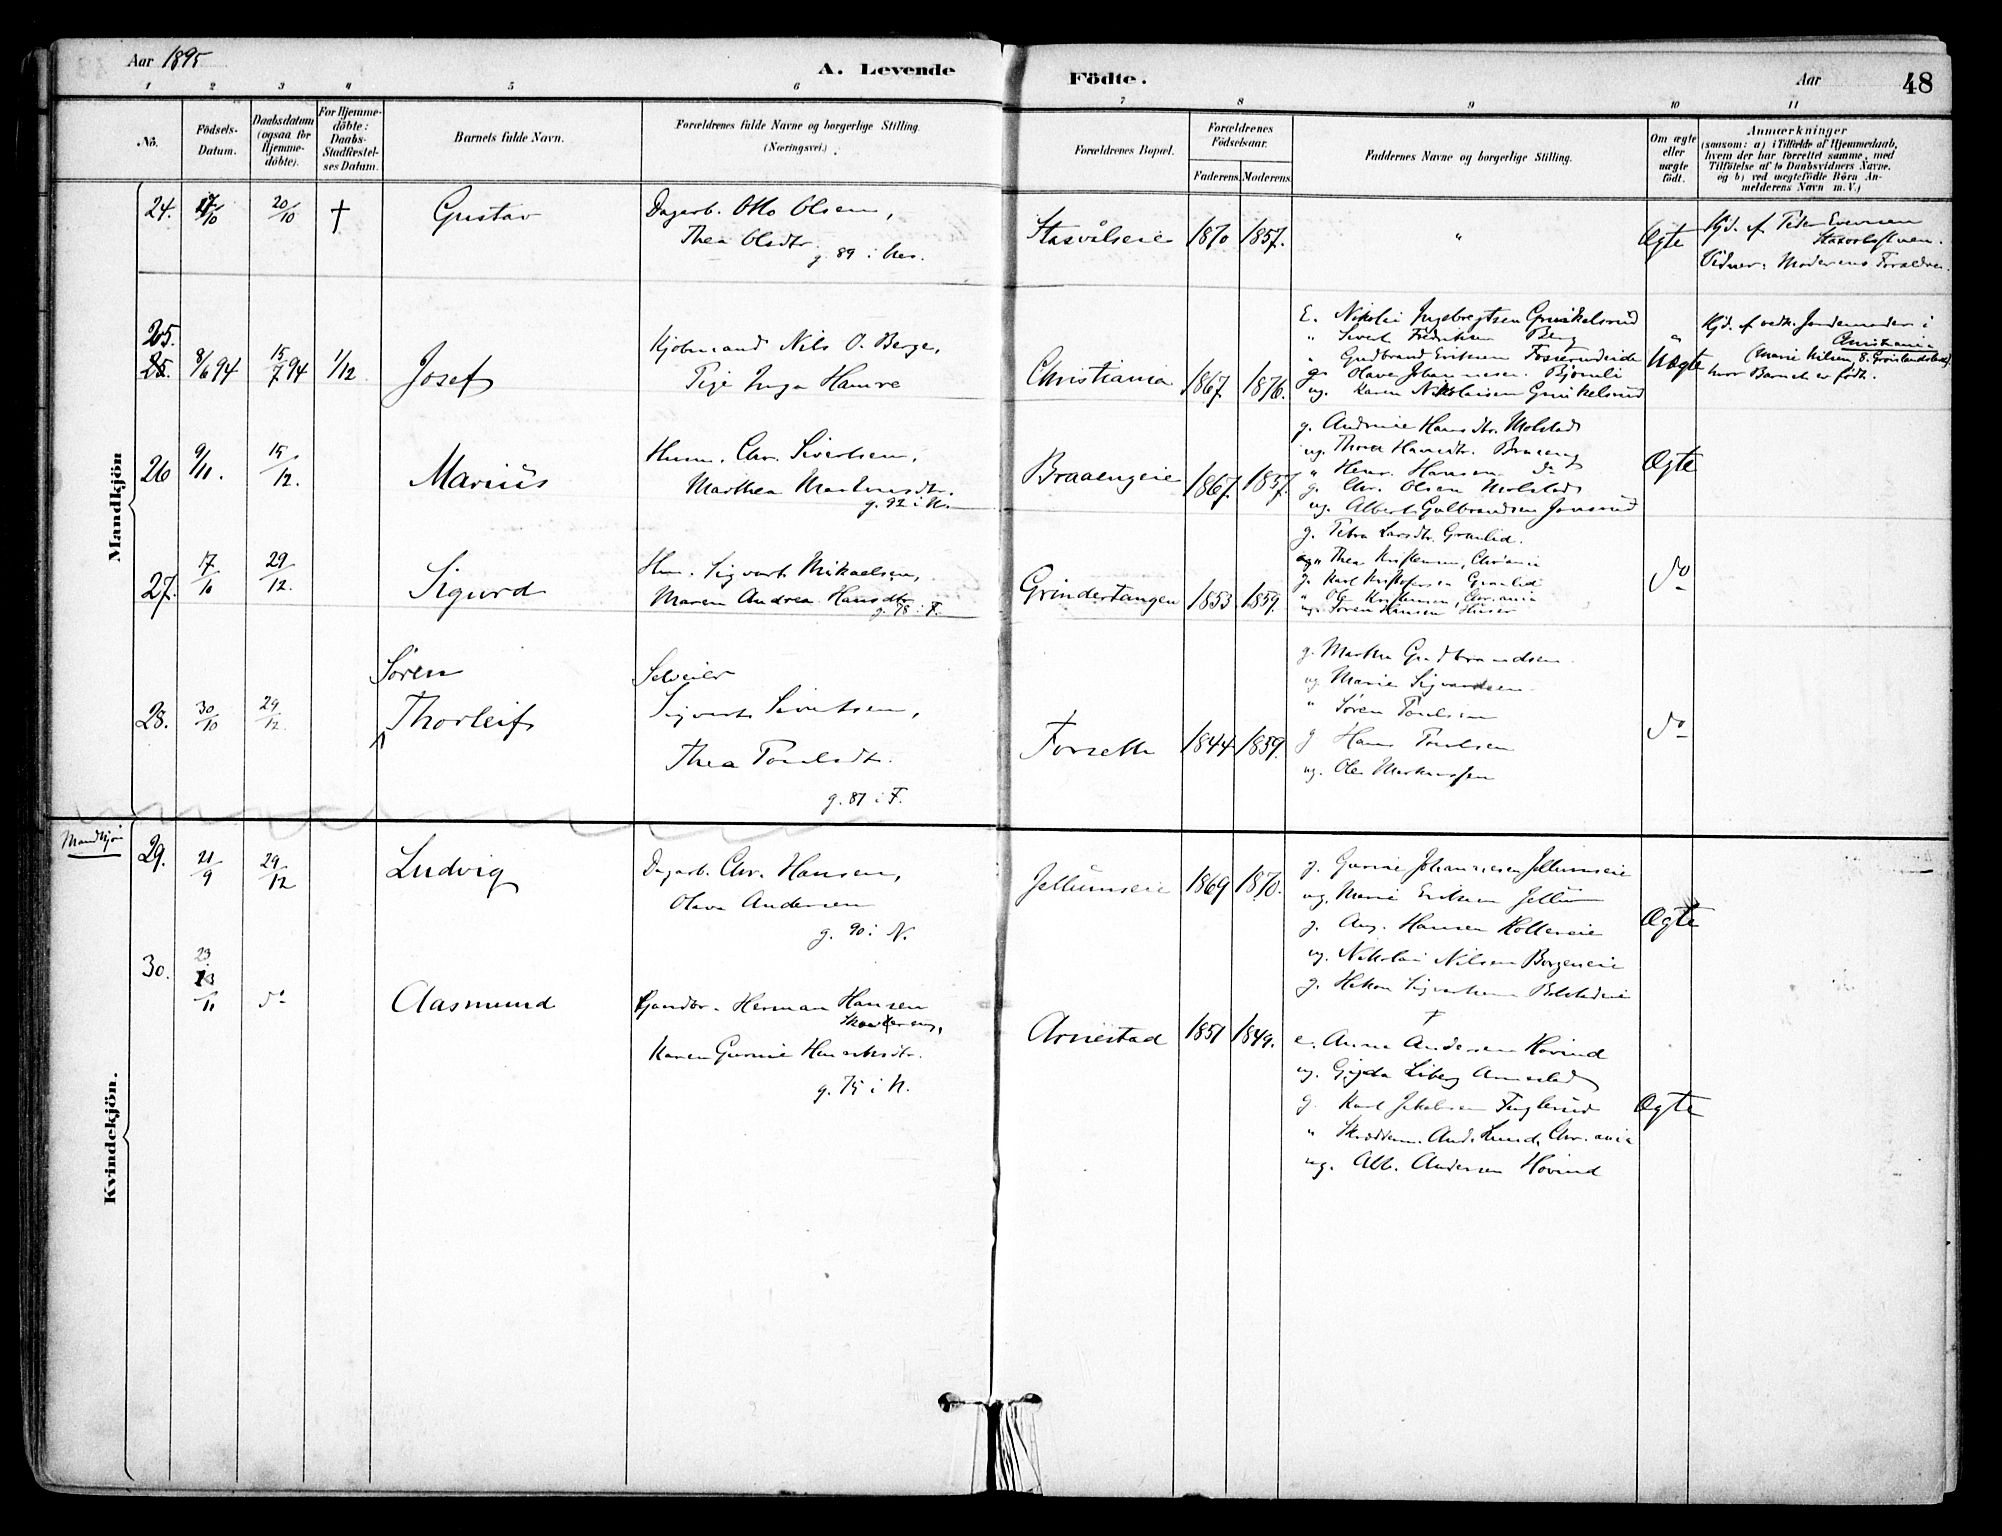 Aar 1895
A. Levende Födte.
Aar 48
1 2 3 4 5 6 7 8 9 10 11
No.
Födsels-
Datum.
Daabsdatum
(ogsaa for
Hjemme-
döbte).
For Hjemme-
döbte:
Daabs-
Stadfæstel-
ses Datum.
Barnets fulde Navn.
Forældrenes fulde Navne og borgerlige Stilling.
(Næringsvei.)
Forældrenes Bopæl.
Forældrenes
Födselsaar.
Faderens. Moderens.
Faddernes Navne og borgerlige Stilling.
Om ægte
eller
uægte
födt.
Anmærkninger
(saasom: a) i Tilfælde af Hjemmedaab,
hvem der har forrettet samme, med
Tilföielse af to Daabsvidners Navne.
og b) ved uægtefödte Börn An-
melderens Navn m. V.)
Mandkjön
24. 17/10 20/10 † Gustav
Dagarb. Otto Olsen,
Thea Olsdtr.
g. 89 i Nes.
1870 1857. " Ægte
Hjd. af Peder Evensen
Vidner: Moderens Forældre.
25.
25. 8/6 94 15/7 94 1/12 Josef
Kjøbmand Nils O. Berge,
Inga Hamre
Christiania 1867. 1876. Uægte
E. Nikolai Ingebregtsen Grinkelsrud
" Sivert Fredriksen Berg
" Gudbrand Eriksen
g. Olave Johannesen Bjørnli
ug. Karen Nikolaisen Grinkelsrud
Hjd. af vedk. Jordemoder i
Christiania
(Marie Nilsen, 8. Grønlandsleret)
hvor Barnet er født.
26 9/11. 15/12. Marius
Husm. Chr. Sivertsen,
Marthea Martinusdtr.
g. 92 i N.
Braaengeie 1867. 1857. Ægte
g. Andrine Hansdtr. Molstad
ug. Thora Hansdtr. Braaeng
" Henr. Hansen do
g. Chr. Olsen Molstad
ug. Albert Gulbrandsen Jonsrud
27. 17/10 29/12. Sigurd
Hm. Sigvart Mikaelsen,
Maren Andrea Hansdtr.
g. 78 i F.
Grindertangen 1853. 1859. do
g. Petra Larsdtr. Granlid.
ug. Thea Kristensen, Chr.ania
g. Karl Kristofersen Granlid
" Ole Kristensen, Chr.ania
ug. Søren Hansen Huser
28. 30/10 29/12. Søren
Thorleif
Selveier
Sigvart Sivertsen,
Thea Poulsdtr.
g. 81 i F.
Forseth 1844 1859. do
g. Marthe Gudbrandsen
ug. Marie Sigvardsen
" Søren Poulsen
g Hans Poulsen
ug. Ole Markussen
Mandkjøn
29. 21/9 29/12 Ludvig
Dagarb. Chr. Hansen,
Olava Andersen
g. 90 i N.
Jellumseie 1869 1870. Ægte
g. Gurine Johannesen Jellumseie
ug. Marie Eriksen Jellum
g. Aug. Hansen Holtereie
ug. Nikolai Nilsen Borgeneie
g. Hakon Sigvartsen Bolstadeie
Kvindekjön.
30. 23/11 do Aasmund
Gaardbr. Herman Hansen
Karen Gurine Henriksdtr.
g. 75 i N.
Arnestad 1851 1849. Ægte
†
e. Anne Andersen Hovind
ug. Gyda Liberg Arnestad
g. Karl Jakobsen Fuglerud
" Skræddern. And. Lund, Chr.ania
ug. Alb. Andersen Hovind